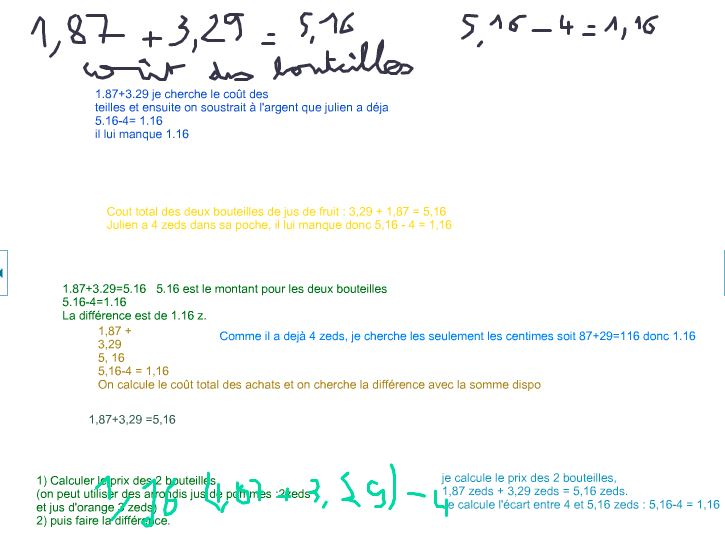 1,87 + 3,29 = 5,16
5,16 - 4 = 1,16
coût des bouteilles
1.87+3.29 je cherche le coût des
teilles et ensuite on soustrait à l'argent que julien a déja
5.16-4= 1.16
il lui manque 1.16
Cout total des deux bouteilles de jus de fruit : 3,29 + 1,87 = 5,16
Julien a 4 zeds dans sa poche, il lui manque donc 5,16 - 4 = 1,16
1.87+3.29=5.16 5.16 est le montant pour les deux bouteilles
5.16-4=1.16
La différence est de 1.16 z.
1,87 +
3,29
5, 16
5,16-4 = 1,16
On calcule le coût total des achats et on cherche la différence avec la somme dispo
Comme il a dejà 4 zeds, je cherche les seulement les centimes soit 87+29=116 donc 1.16
1,87+3,29 =5,16
1) Calculer le prix des 2 bouteilles
(on peut utiliser des arrondis jus de pommes :2zeds
et jus d'orange 3 zeds)
2) puis faire la différence.
(1,87 + 3,29) - 4
je calcule le prix des 2 bouteilles,
1,87 zeds + 3,29 zeds = 5,16 zeds.
je calcule l'écart entre 4 et 5,16 zeds : 5,16-4 = 1,16